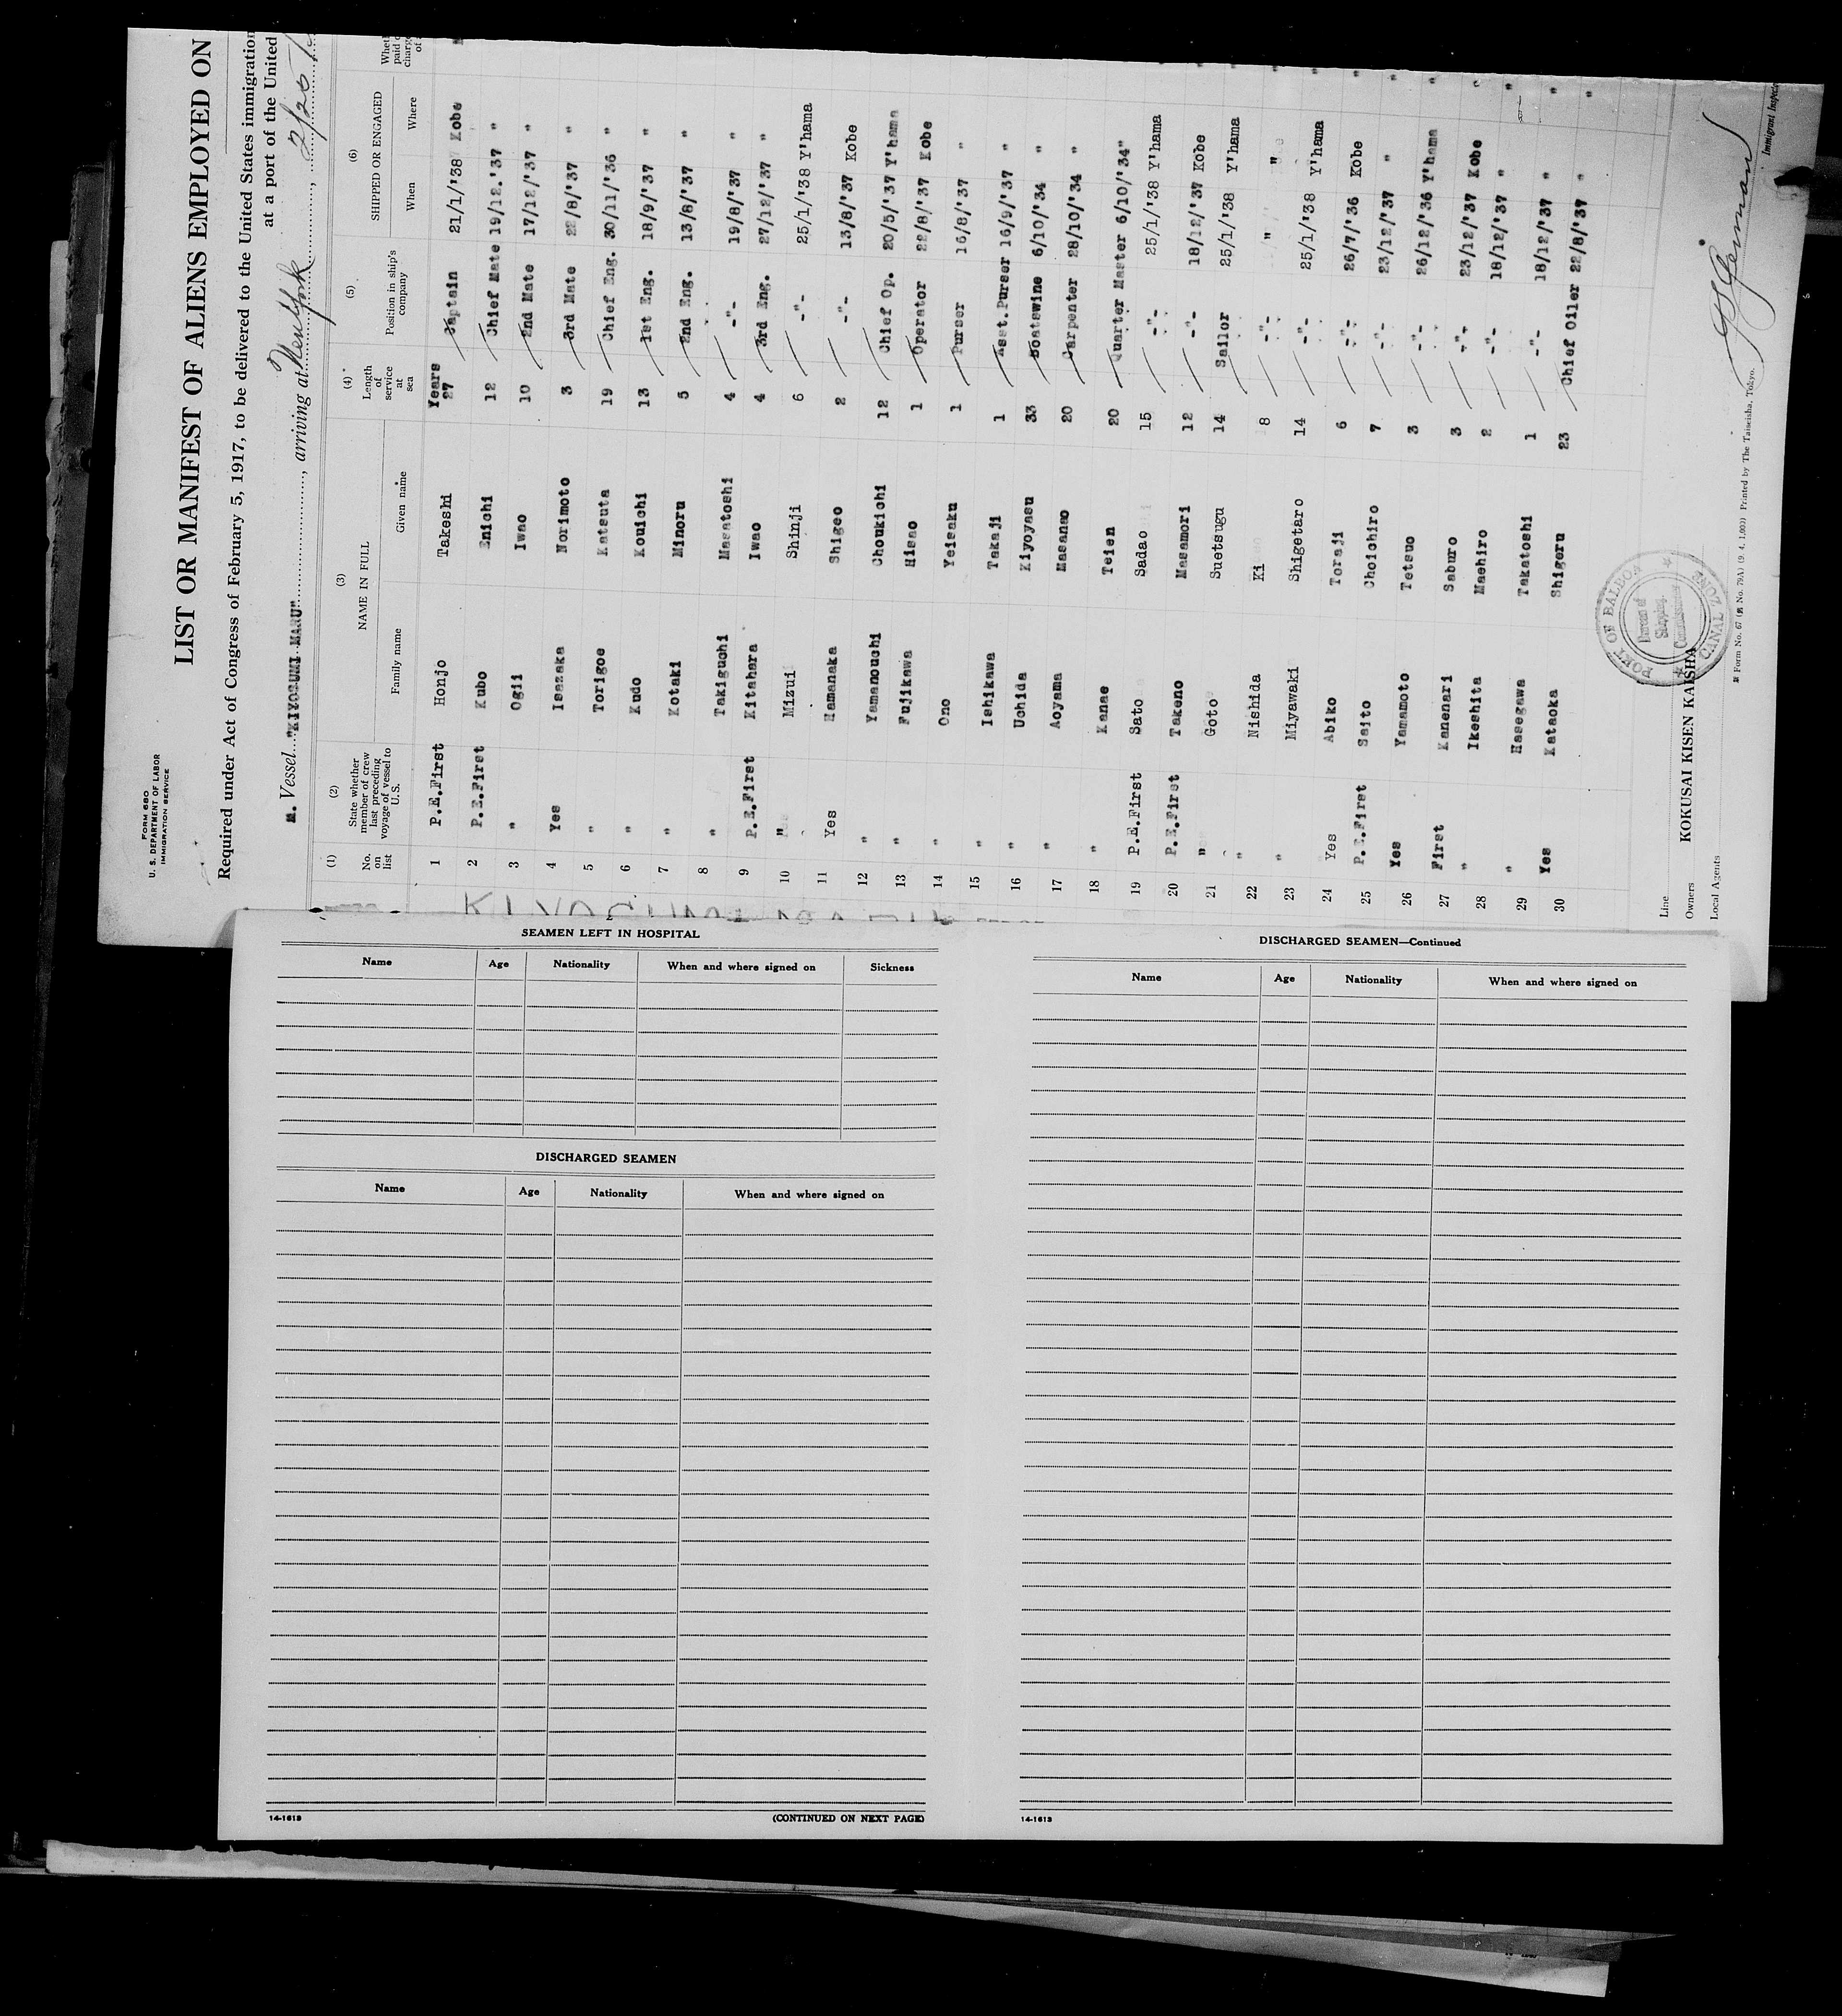 FORM 680
U. S. DEPARTMENT OF LABOR
IMMIGRATION SERVICE
LIST OR MANIFEST OF ALIENS EMPLOYED ON
Required under Act of Congress of February 5, 1917, to be delivered to the United States immigration
at a port of the United
M. Vessel "KIYOSUMI MARU", arriving at New York, 2/20
(1) No. on list
(2) State whether member of crew last preceding voyage of vessel to U.S.
(3) NAME IN FULL
Family name Given name
(4) Length of service at sea
(5) Position in ship's company
(6) SHIPPED OR ENGAGED
When Where
Years
1 P.E.First Honjo Takeshi 27 Captain 21/1/'38 Kobe
2 P.E.First Kubo Enichi 12 Chief Mate 19/12.'37 "
3 " Ogii Iwao 10 2nd Mate 17/12/'37 "
4 Yes Isazaka Norimoto 3 3rd Mate 22/8/'37 "
5 " Torigoe Katsuta 19 Chief Eng. 30/11/'36 "
6 " Kudo Kouichi 13 1st Eng. 18/9/'37 "
7 " Kotaki Minoru 5 2nd Eng. 13/8/'37 "
8 " Takiguchi Masatoshi 4 -"- 19/8/'37 "
9 P.E.First Kitahara Iwao 4 3rd Eng. 27/12/'37 "
10 " Mizui Shinji 6 -"- 25/1/'38 Y'hama
11 Yes Hamanaka Shigeo 2 -"- 13/8/'37 Kobe
12 " Yamanouchi Choukichi 12 Chief Op. 20/5/'37 Y'hama
13 " Fujikawa Hisao 1 Operator 22/8/'37 Kobe
14 " Ono Yeisaku 1 Purser 16/8/'37 "
15 " Ishikawa Takaji 1 Asst.Purser 16/9/'37 "
16 " Uchida Kiyoyasu 33 Boatswine 6/10/'34 "
17 " Aoyama Masanao 20 Carpenter 28/10/'34 "
18 " Kanae Teien 20 Quarter Master 6/10/'34"
19 P.E.First Sato Sadao 15 -"- 25/1/'38 Y'hama
20 P.E.First Takeno Masamori 12 -"- 18/12/'37 Kobe
21 " Goto Suetsugu 14 Sailor 25/1/'38 Y'hama
22 " Nishida Ki 8 -"- " "
23 " Miyawaki Shigetaro 14 -"- 25/1/'38 Y'hama
24 Yes Abiko Toraji 6 -"- 26/7/'36 Kobe
25 P.E.First Saito Choichiro 7 -"- 23/12/'37 "
26 Yes Yamamoto Tetsuo 3 -"- 26/12/'36 Y'hama
27 First Kanenari Saburo 3 -"- 23/12/'37 Kobe
28 " Ikeshita Maehiro 2 -"- 18/12/'37 "
29 " Hasegawa Takatoshi 1 -"- 18/12/'37 "
30 Yes Kataoka Shigeru 23 Chief Oiler 22/8/'37 "
Line
Owners KOKUSAI KISEN KAISHA
Local Agents
PORT OF BALBOA
Bureau of
Shipping
Commissioner
CANAL ZONE
Form No. 67 (No. 79A) (9. 4. 1.000) Printed by The Taiseisha, Tokyo.
Immigrant Inspector
KIYOSUMI MARU
SEAMEN LEFT IN HOSPITAL
Name Age Nationality When and where signed on Sickness
DISCHARGED SEAMEN
Name Age Nationality When and where signed on
14-1613
(CONTINUED ON NEXT PAGE)
DISCHARGED SEAMEN—Continued
Name Age Nationality When and where signed on
14-1613